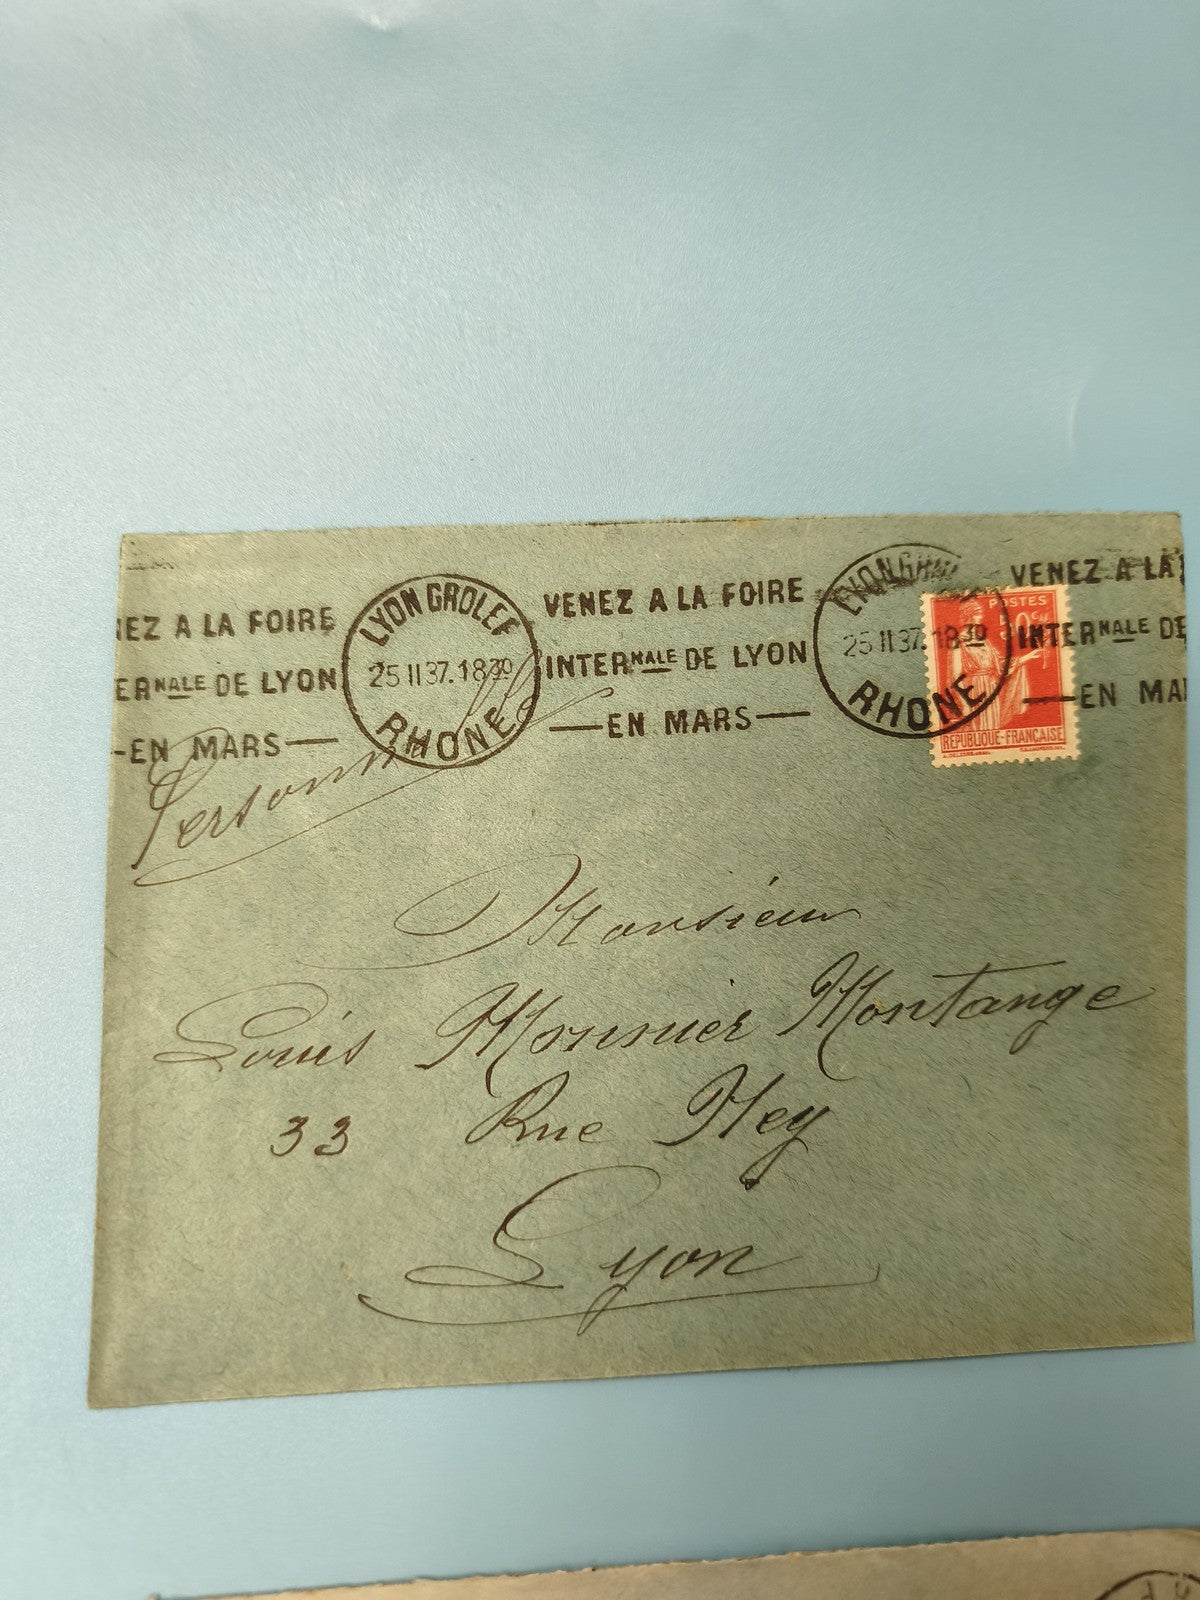 NEZ A LA FOIRE
ERNALE DE LYON
—EN MARS—
LYON GROLEE
25 II 37. 18 30
RHONE
VENEZ A LA FOIRE
INTERNALE DE LYON
—EN MARS—
LYON GROLEE
25 II 37. 18 30
RHONE
POSTES
50 C
REPUBLIQUE-FRANÇAISE
VENEZ A LA
INTERNALE DE
—EN MA
Personnelle
Monsieur
Louis Monnier Montange
33 Rue Ney
Lyon